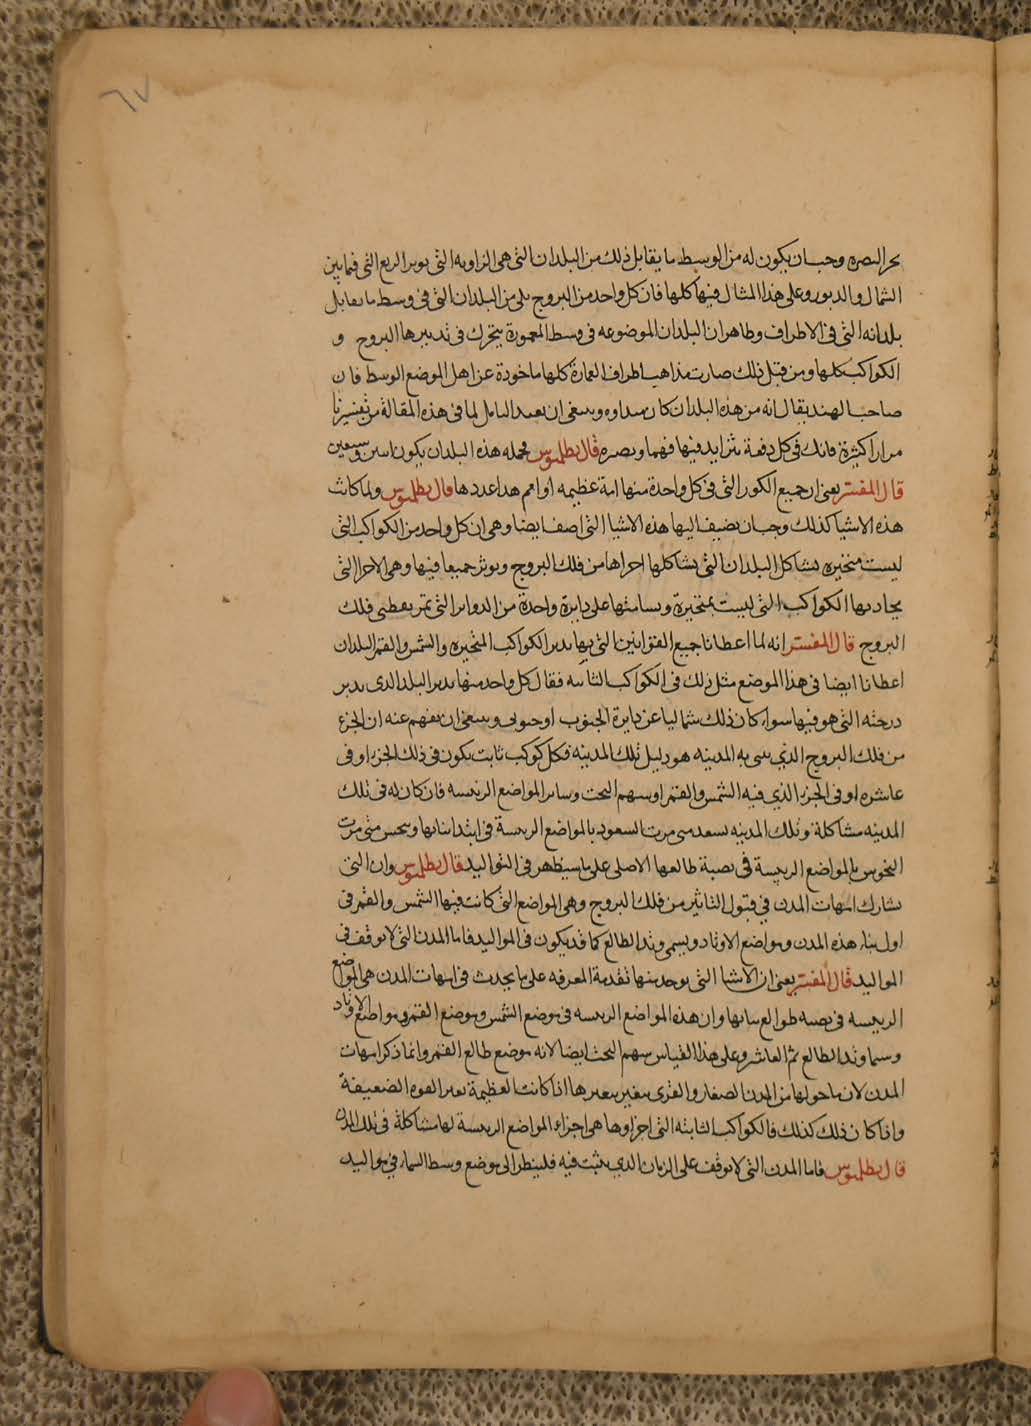 ٦٧
بحر البصره وجب ان يكون له من الوسط ما يقابل ذلك من البلدان التي هي الزاويه التي يوتر الربع التي فيما بين
الشمال والدبور وعلى هذا المثال فيها كلها فان كل واحد من البروج يلي من البلدان التي في وسط ما يقابل
بلدانه التي في الاطراف وظاهر ان البلدان الموضوعه في وسط المعمورة يتحرك في تدبيرها البروج و
الكواكب كلها ومن قبل ذلك صارت مذاهب اطراف العمارة كلها ماخوذة عن اهل الموضع الوسط فان
صاحب الهند يقال انه من هذه البلدان كان مبداوه وينبغي ان يعيد التامل لما في هذه المقالة من تفسيرنا
مرارا كثيرة فانك في كل دفعة تتزايد فيها فهما وبصره قال بطلميوس فجمله هذه البلدان يكون اثنين وسبعين
قال المفسر يعني ان جميع الكور التي في كل واحدة منها امة عظيمه او امم هذا عددها قال بطلميوس ولما كانت
هذه الاشيا كذلك وجب ان يضيف اليها هذه الاشيا التي اصف ايضا وهي ان كل واحد من الكواكب التي
ليست متحيره يشاكل البلدان التي يشاكلها اجزاها من فلك البروج ويوثر جميعا فيها وهي الاجزا التي
يحاديها الكواكب التي ليست بمتحيرة ويسامتها على دايرة واحدة من الدواير التي تمر بقطبي فلك
البروج قال المفسر انه لما اعطانا جميع القوانين التي بها يدبر الكواكب المتحيره والشمس والقمر البلدان
اعطانا ايضا في هذا الموضع مثل ذلك في الكواكب الثابته فقال كل واحد منها يدبر البلد الذي يدبر
درجته التي هو فيها سواء كان ذلك شماليا عن دايرة الجنوب او جنوبي وينبغي ان يفهم عنه ان الجزء
من فلك البروج الذي بني به المدينه هو دليل تلك المدينه فكل كوكب ثابت يكون في ذلك الجزء او في
عاشره او في الجزء الذي فيه الشمس والقمر او سهم البخت وساير المواضع الرئيسه فان كان له في تلك
المدينه مشاكلة وتلك المدينه يسعد متى مرت السعود بالمواضع الرئيسة في ابتدا بنائها وينحس متى مرت
النحوس بالمواضع الرييسة في نصبة طالعها الاصلي على ما سيظهر في المواليد قال بطلميوس وان التي
يشارك امهات المدن في قبول التاثير من فلك البروج وهي المواضع التي كانت فيها الشمس والقمر في
اول بناء هذه المدن ومواضع الاوتاد ويسمي وتد الطالع كما قد يكون في المواليد فاما المدن التي لا يوقف في
المواليد قال المفسر يعني ان الاشيا التي يوجد منها تقدمة المعرفه على ما يحدث في امهات المدن هي المواضع
الرييسه في نصبه طوالع بنائها وان هذه المواضع الرييسه في موضع الشمس وموضع القمر ومواضع الاوتاد
وسيما وتد الطالع ثم العاشر وعلى هذا القياس سهم البخت ايضا لانه موضع طالع القمر وانما ذكر امهات
المدن لان ما حولها من المدن الصغار والقرى يتغير بتغيرها اذا كانت العظيمة تغير القوه الضعيفة
واذا كان ذلك كذلك فالكواكب الثابته التي اجزاوها هي اجزاء المواضع الرييسة لها مشاكلة في تلك المدن
قال بطلميوس فاما المدن التي لا يوقف على الزمان الذي بنيت فيه فلينظر الى موضع وسط السماء في مواليد